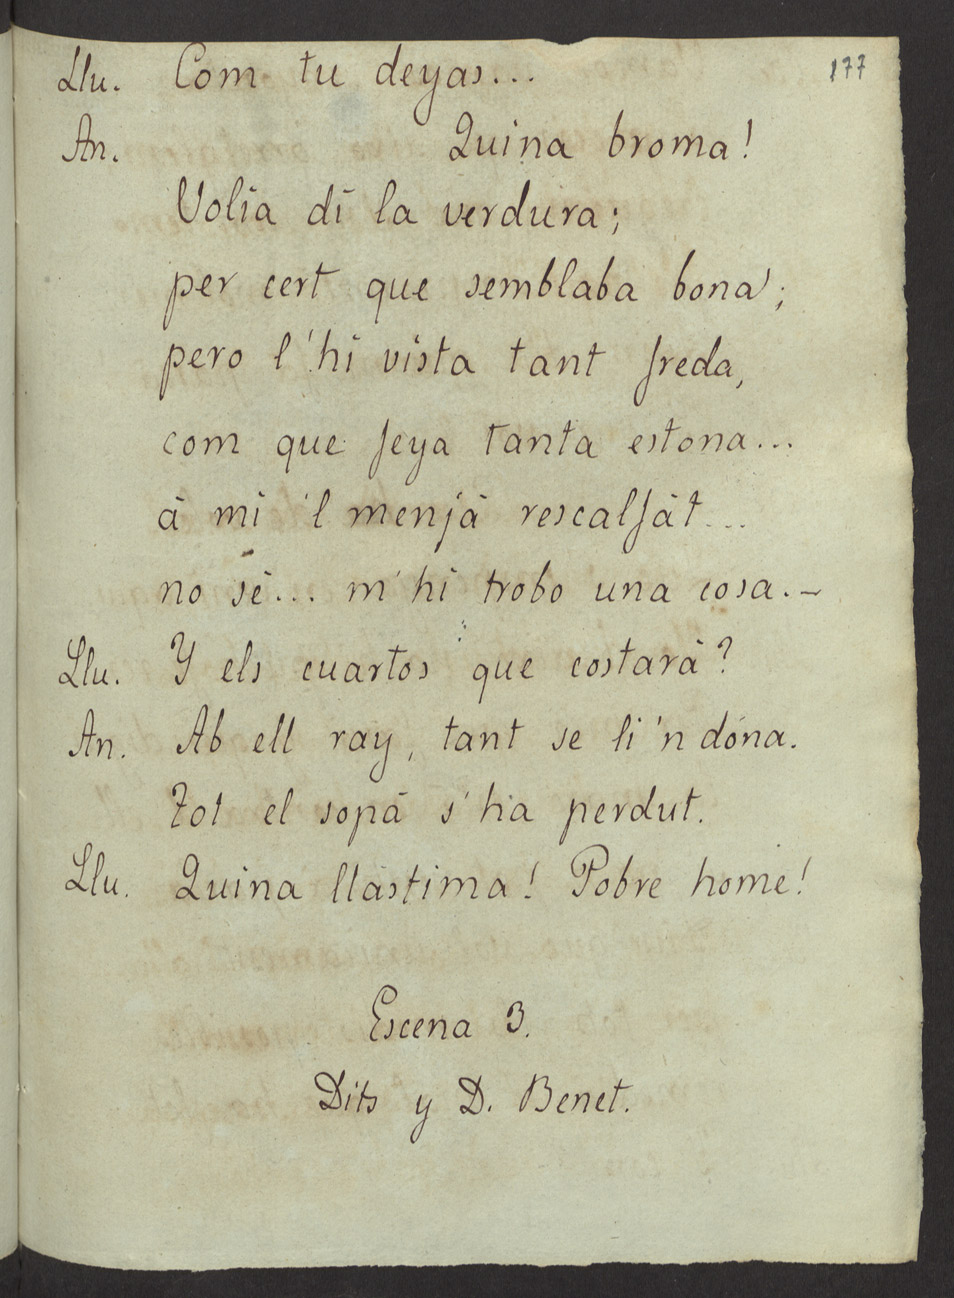 177
Llu. Com tu deyas...
An. Quina broma!
Volia di la verdura;
per cert que semblaba bona;
pero l'hi vista tant freda,
com que feya tanta estona...
á mi 'l menjá rescalfát...
no sé... m'hi trobo una cosa.—
Llu. Y els cuartos que costará?
An. Ab ell ray, tant se li 'n dóna.
Tot el sopá s'ha perdut.
Llu. Quina llástima! Pobre home!
Escena 3.
Dits y D. Benet.